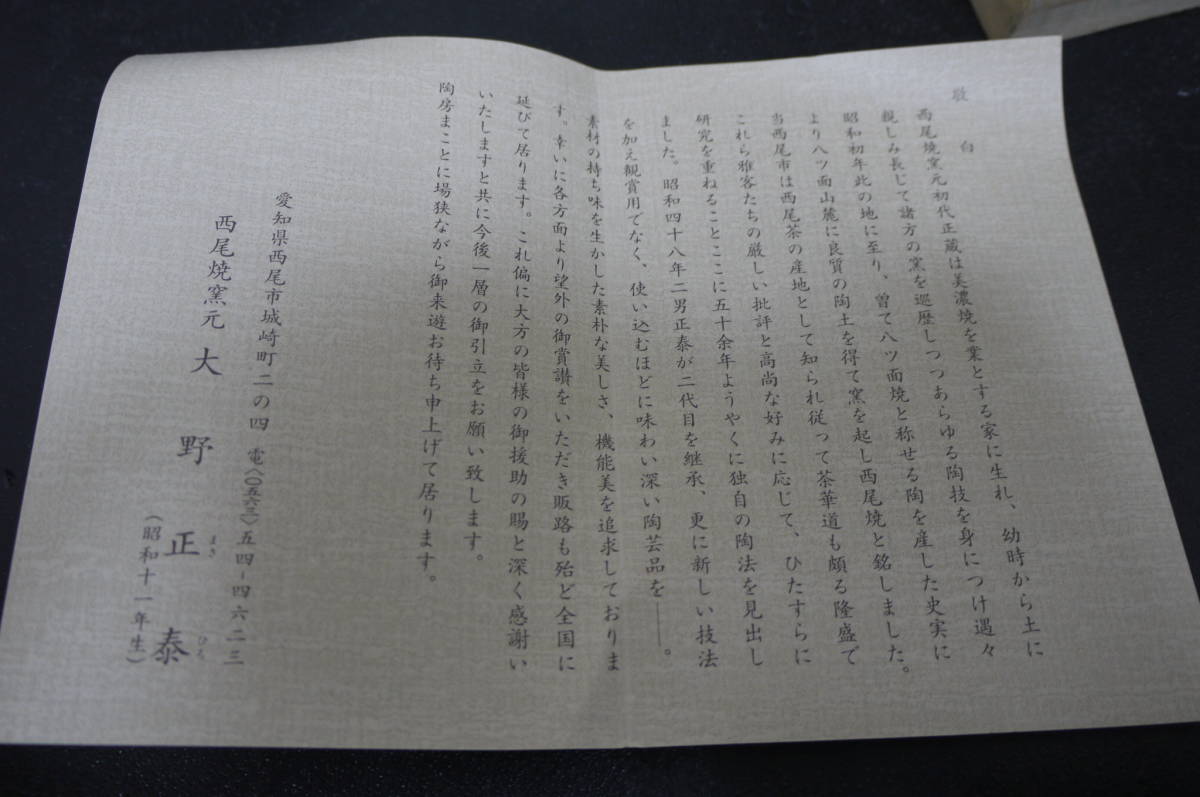 敬白
西尾焼窯元初代正蔵は美濃焼を業とする家に生れ、幼時から土に
親しみ長じて諸方の窯を巡歴しつつあらゆる陶技を身につけ遇々
昭和初年此の地に至り、曽て八ツ面焼と称せる陶を産した史実に
より八ツ面山麓に良質の陶土を得て窯を起し西尾焼と銘しました。
当西尾市は西尾茶の産地として知られ従って茶華道も頗る隆盛で
これら雅客たちの厳しい批評と高尚な好みに応じて、ひたすらに
研究を重ねることここに五十余年ようやくに独自の陶法を見出し
ました。昭和四十八年二男正泰が二代目を継承、更に新しい技法
を加え観賞用でなく、使い込むほどに味わい深い陶芸品を――。
素材の持ち味を生かした素朴な美しさ、機能美を追求しておりま
す。幸いに各方面より望外の御賞讃をいただき販路も殆ど全国に
延びて居ります。これ偏に大方の皆様の御援助の賜と深く感謝い
いたしますと共に今後一層の御引立をお願い致します。
陶房まことに場狭ながら御来遊お待ち申上げて居ります。
愛知県西尾市城崎町二の四 電〈〇五六三〉五四-四六二三
西尾焼窯元 大野正泰
まさ ひろ
(昭和十一年生)